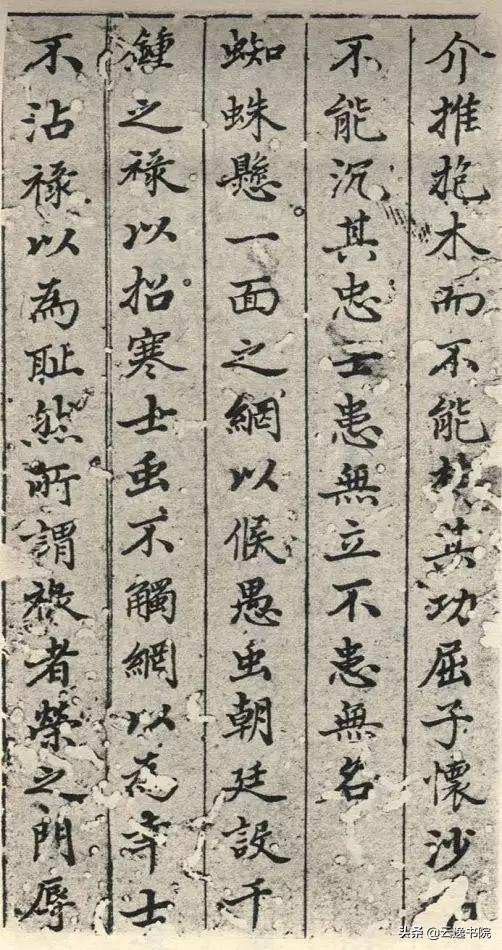 介推抱木而不能其功屈子懷沙
不能沉其忠士患無立不患無名
蜘蛛懸一面之網以候愚虫朝廷設千
鍾之禄以招寒士虫不觸網以為幸士
不沾禄以為耻然所謂禄者榮之門辱
头条 @云逸书院